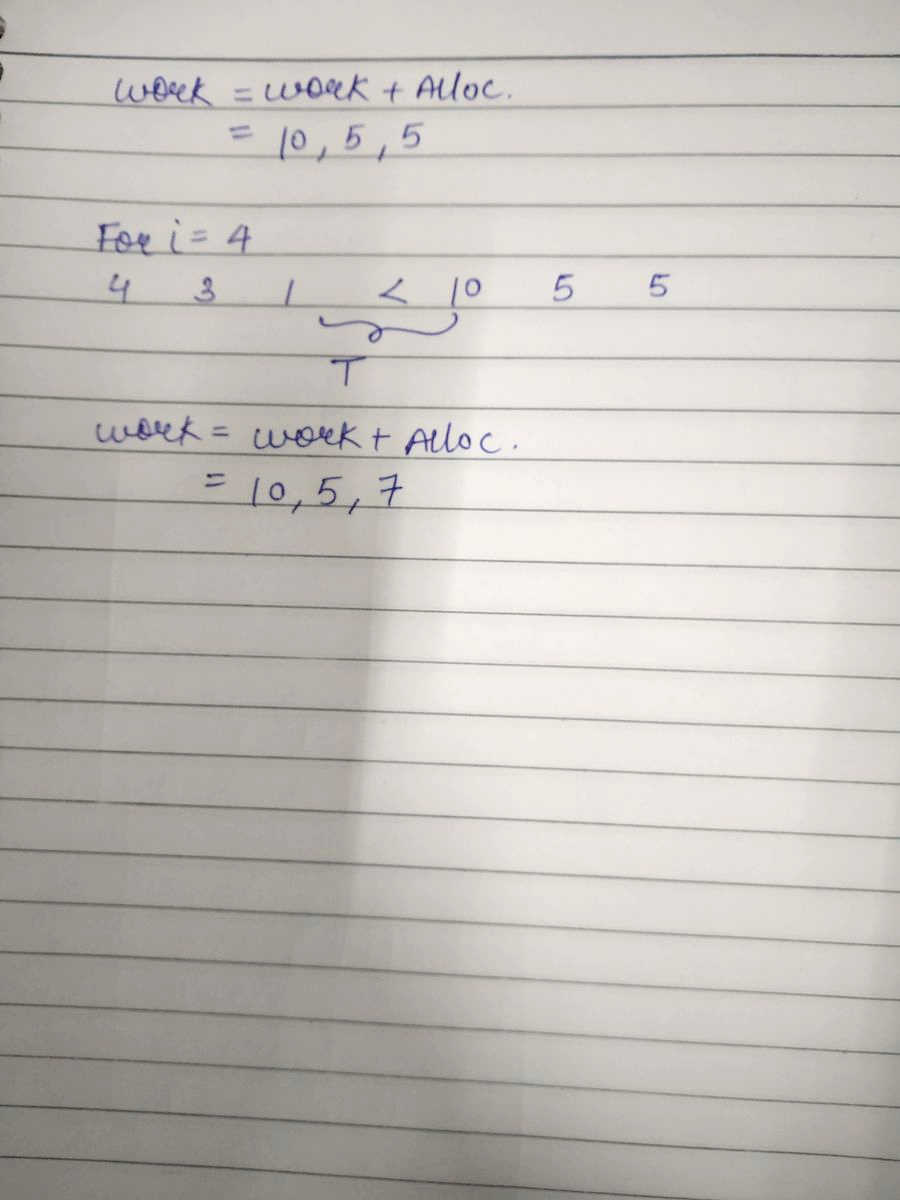 work = work + Alloc.
= 10, 5, 5
For i = 4
4 3 1 < 10 5 5
T
work = work + Alloc.
= 10, 5, 7